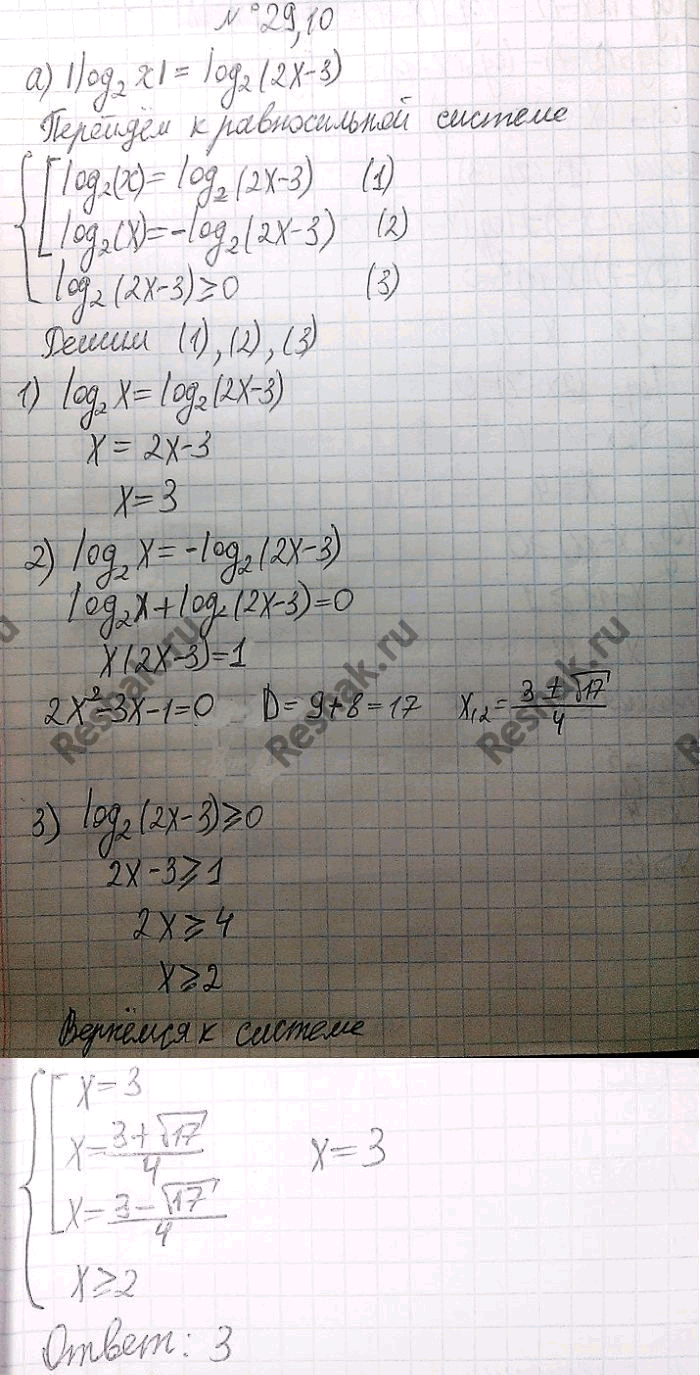 № 29,10
а) |log₂ x| = log₂(2x-3)
Перейдём к равносильной системе
log₂(x) = log₂(2x-3) (1)
log₂(x) = -log₂(2x-3) (2)
log₂(2x-3) ≥ 0 (3)
Решим (1), (2), (3)
1) log₂ x = log₂(2x-3)
x = 2x-3
x = 3
2) log₂ x = -log₂(2x-3)
log₂ x + log₂(2x-3) = 0
x(2x-3) = 1
2x²-3x-1=0 D = 9+8 = 17 x₁,₂ = (3±√17)/4
3) log₂(2x-3) ≥ 0
2x-3 ≥ 1
2x ≥ 4
x ≥ 2
Вернёмся к системе
x = 3
x = (3+√17)/4 x = 3
x = (3-√17)/4
x ≥ 2
Ответ: 3
Reshak.ru
Reshak.ru
Reshak.ru